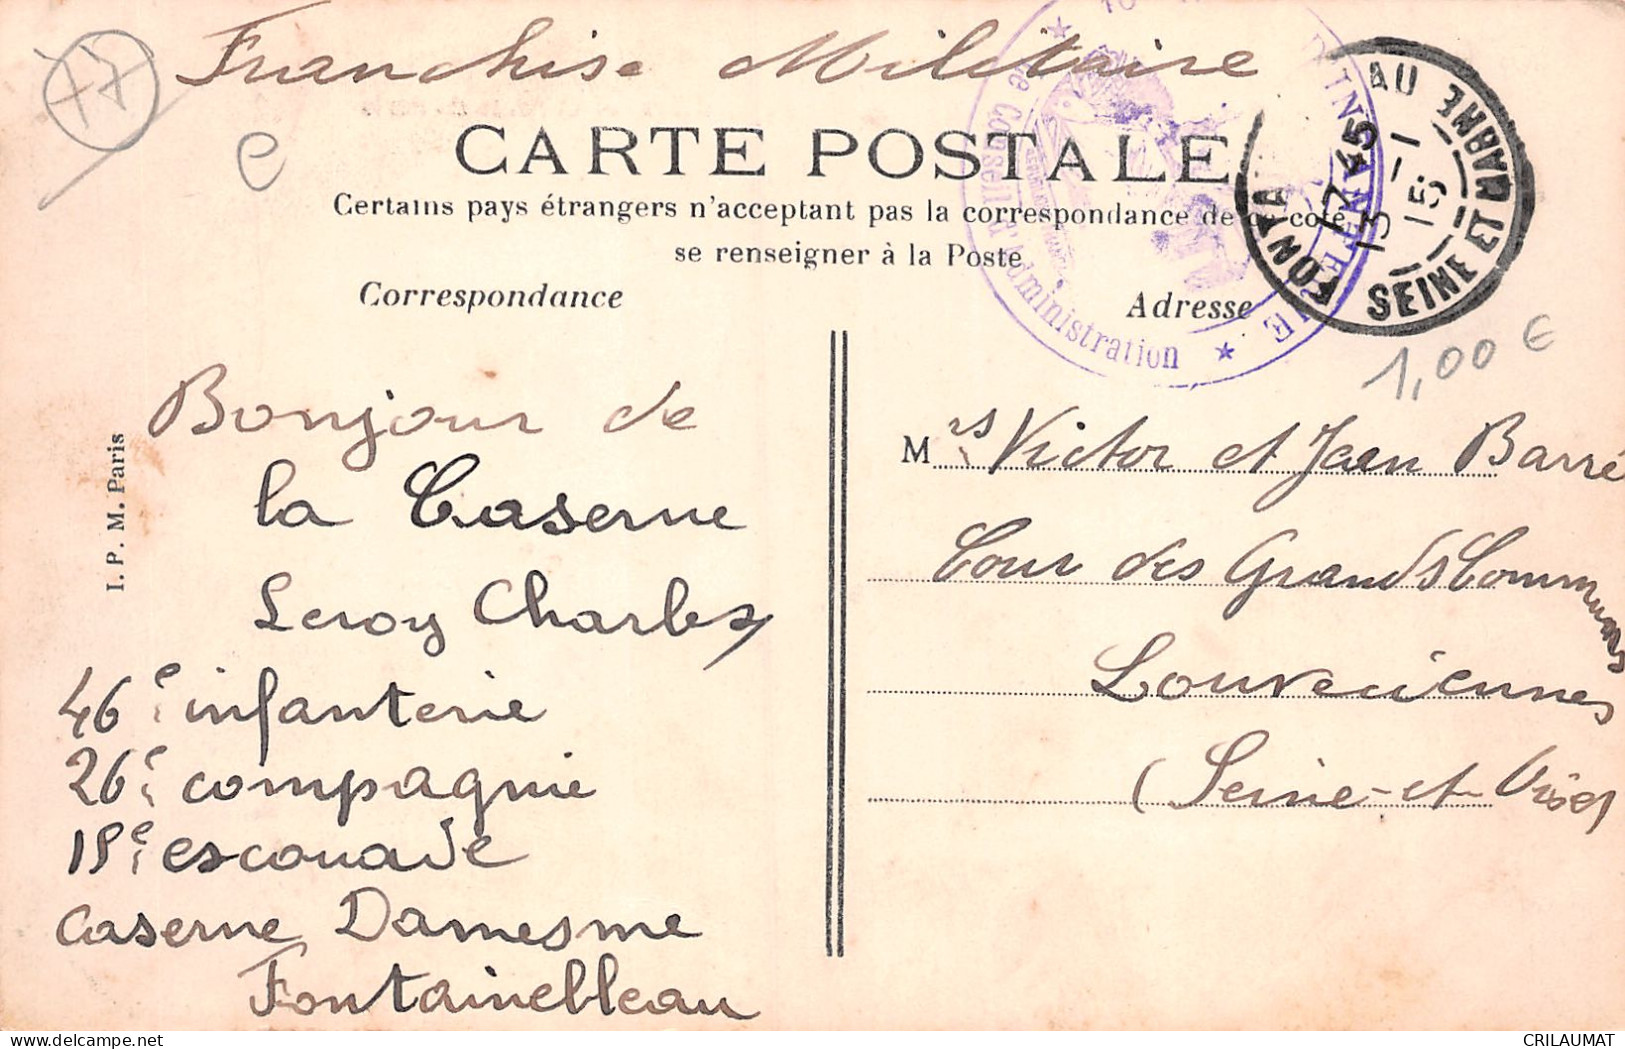 77
Franchise Militaire
e
CARTE POSTALE
Certains pays étrangers n'acceptent pas la correspondance de ce côté
se renseigner à la Poste
Correspondance
Adresse
D'INFANTERIE
Le Conseil d'Administration
FONTA AU
SEINE ET MARNE
17 45
13 - 1
15
1,00 €
Bonjour de
la Caserne
Leroy Charles
46e infanterie
26e compagnie
15e escouade
caserne Damesme
Fontainebleau
I. P. M. Paris
Mrs Victor et Jean Barré
Cour des Grands Communs
Louveciennes
(Seine-et-Oise)
CRILAUMAT